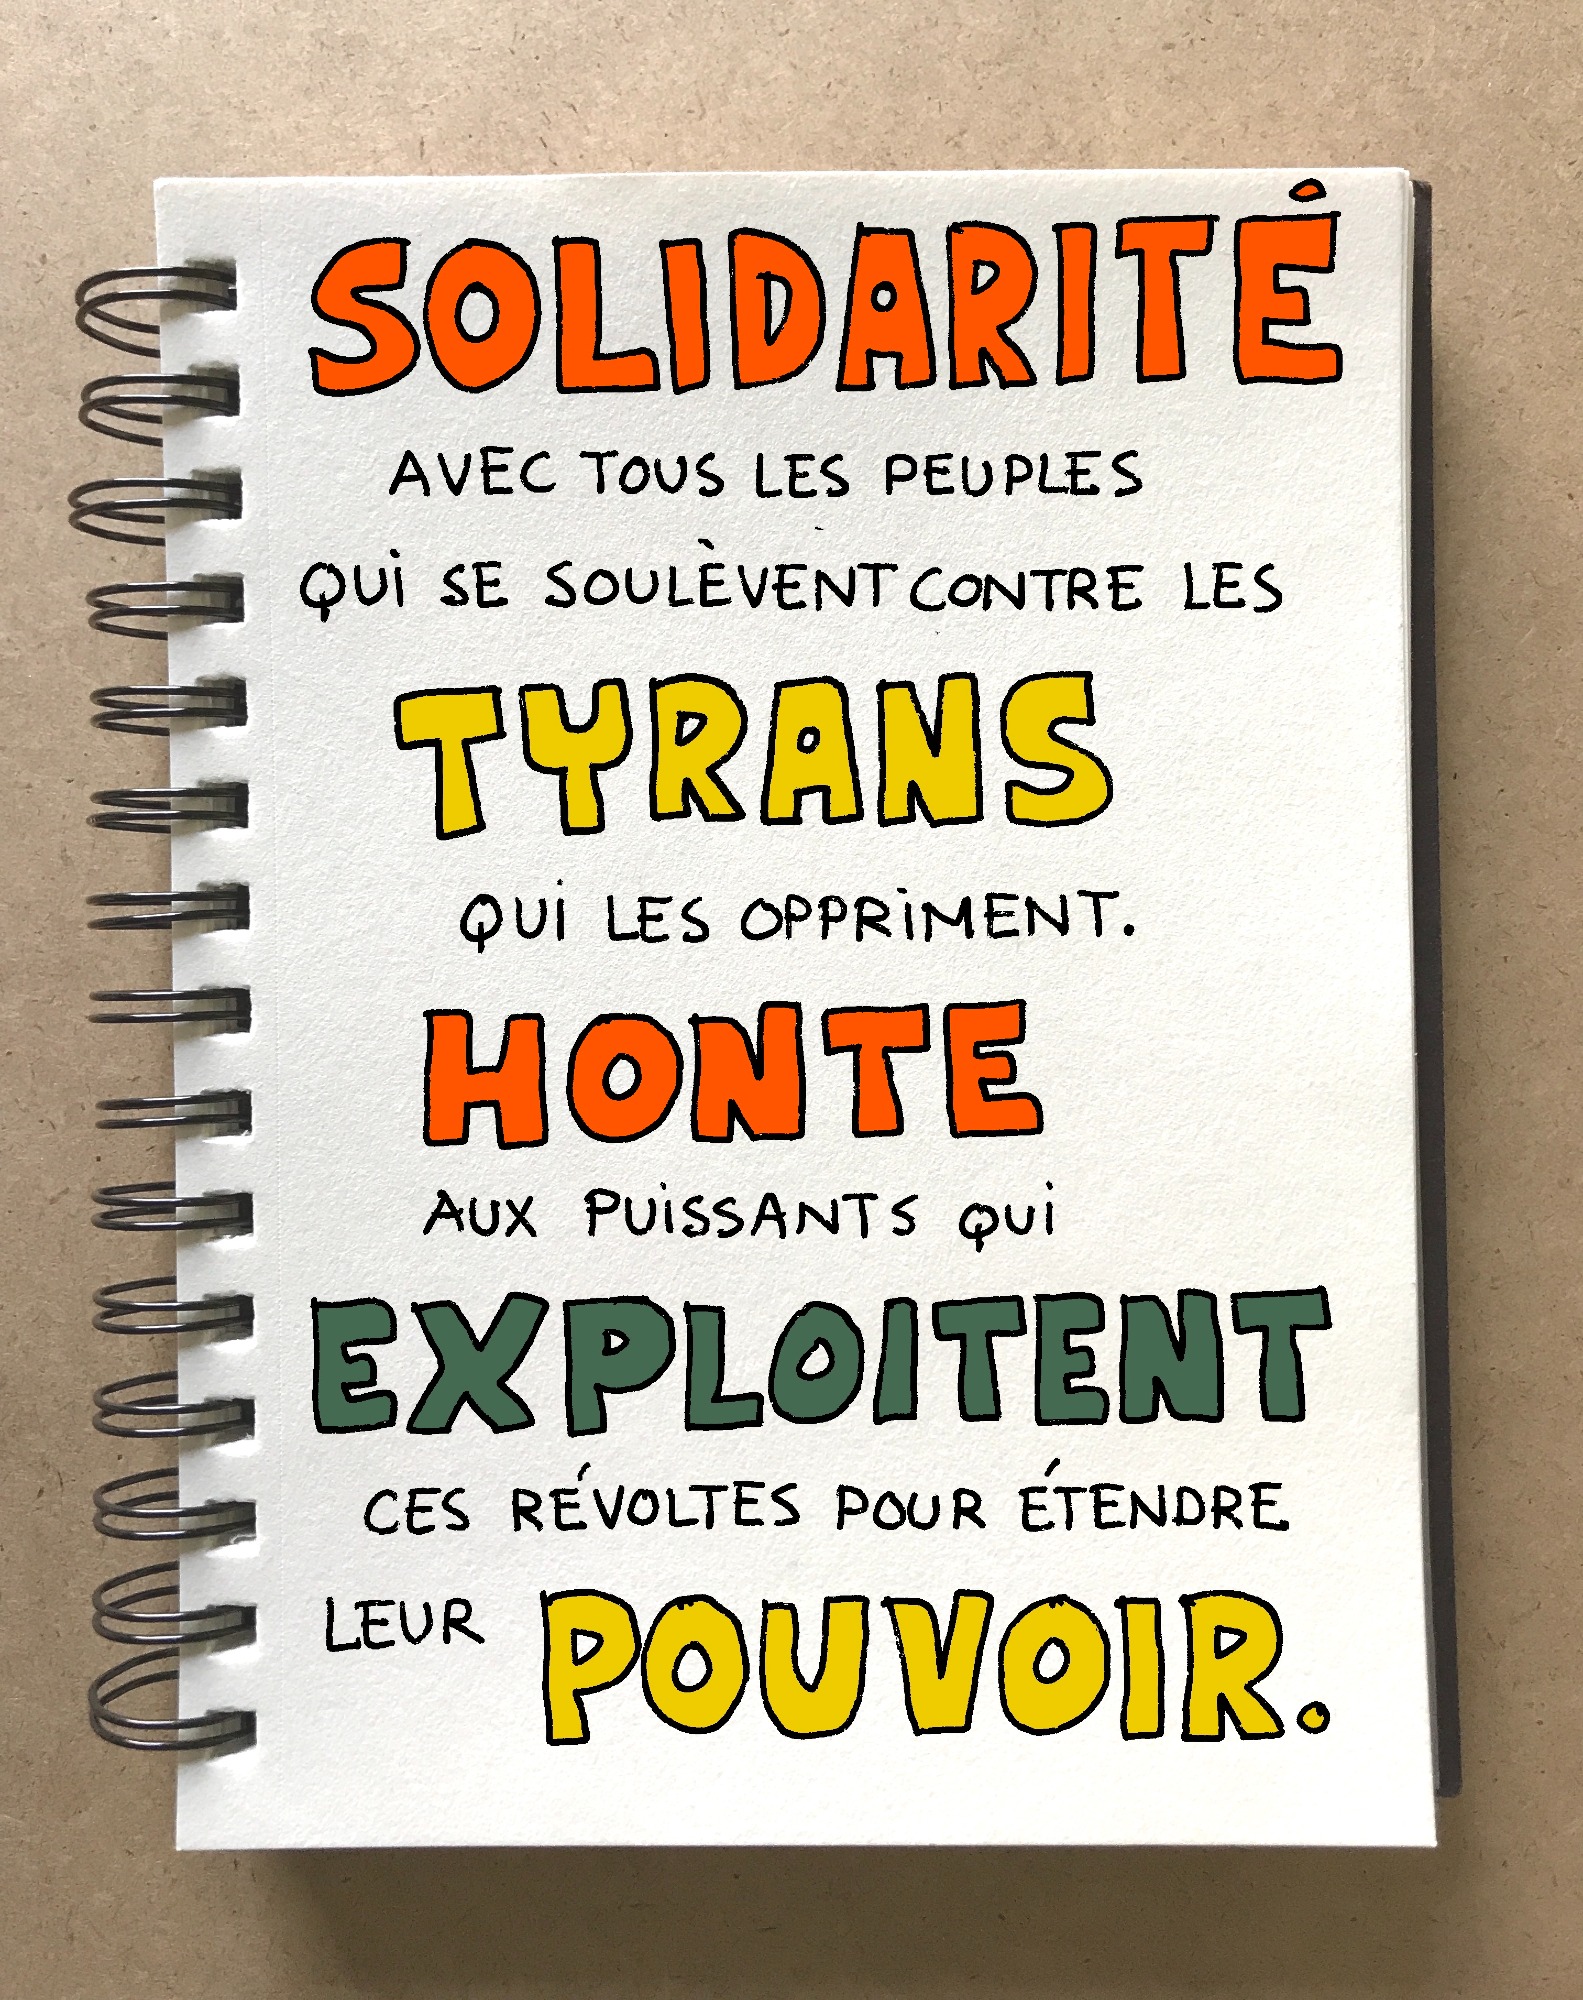 SOLIDARITÉ
AVEC TOUS LES PEUPLES
QUI SE SOULÈVENT CONTRE LES
TYRANS
QUI LES OPPRIMENT.
HONTE
AUX PUISSANTS QUI
EXPLOITENT
CES RÉVOLTES POUR ÉTENDRE
LEUR POUVOIR.